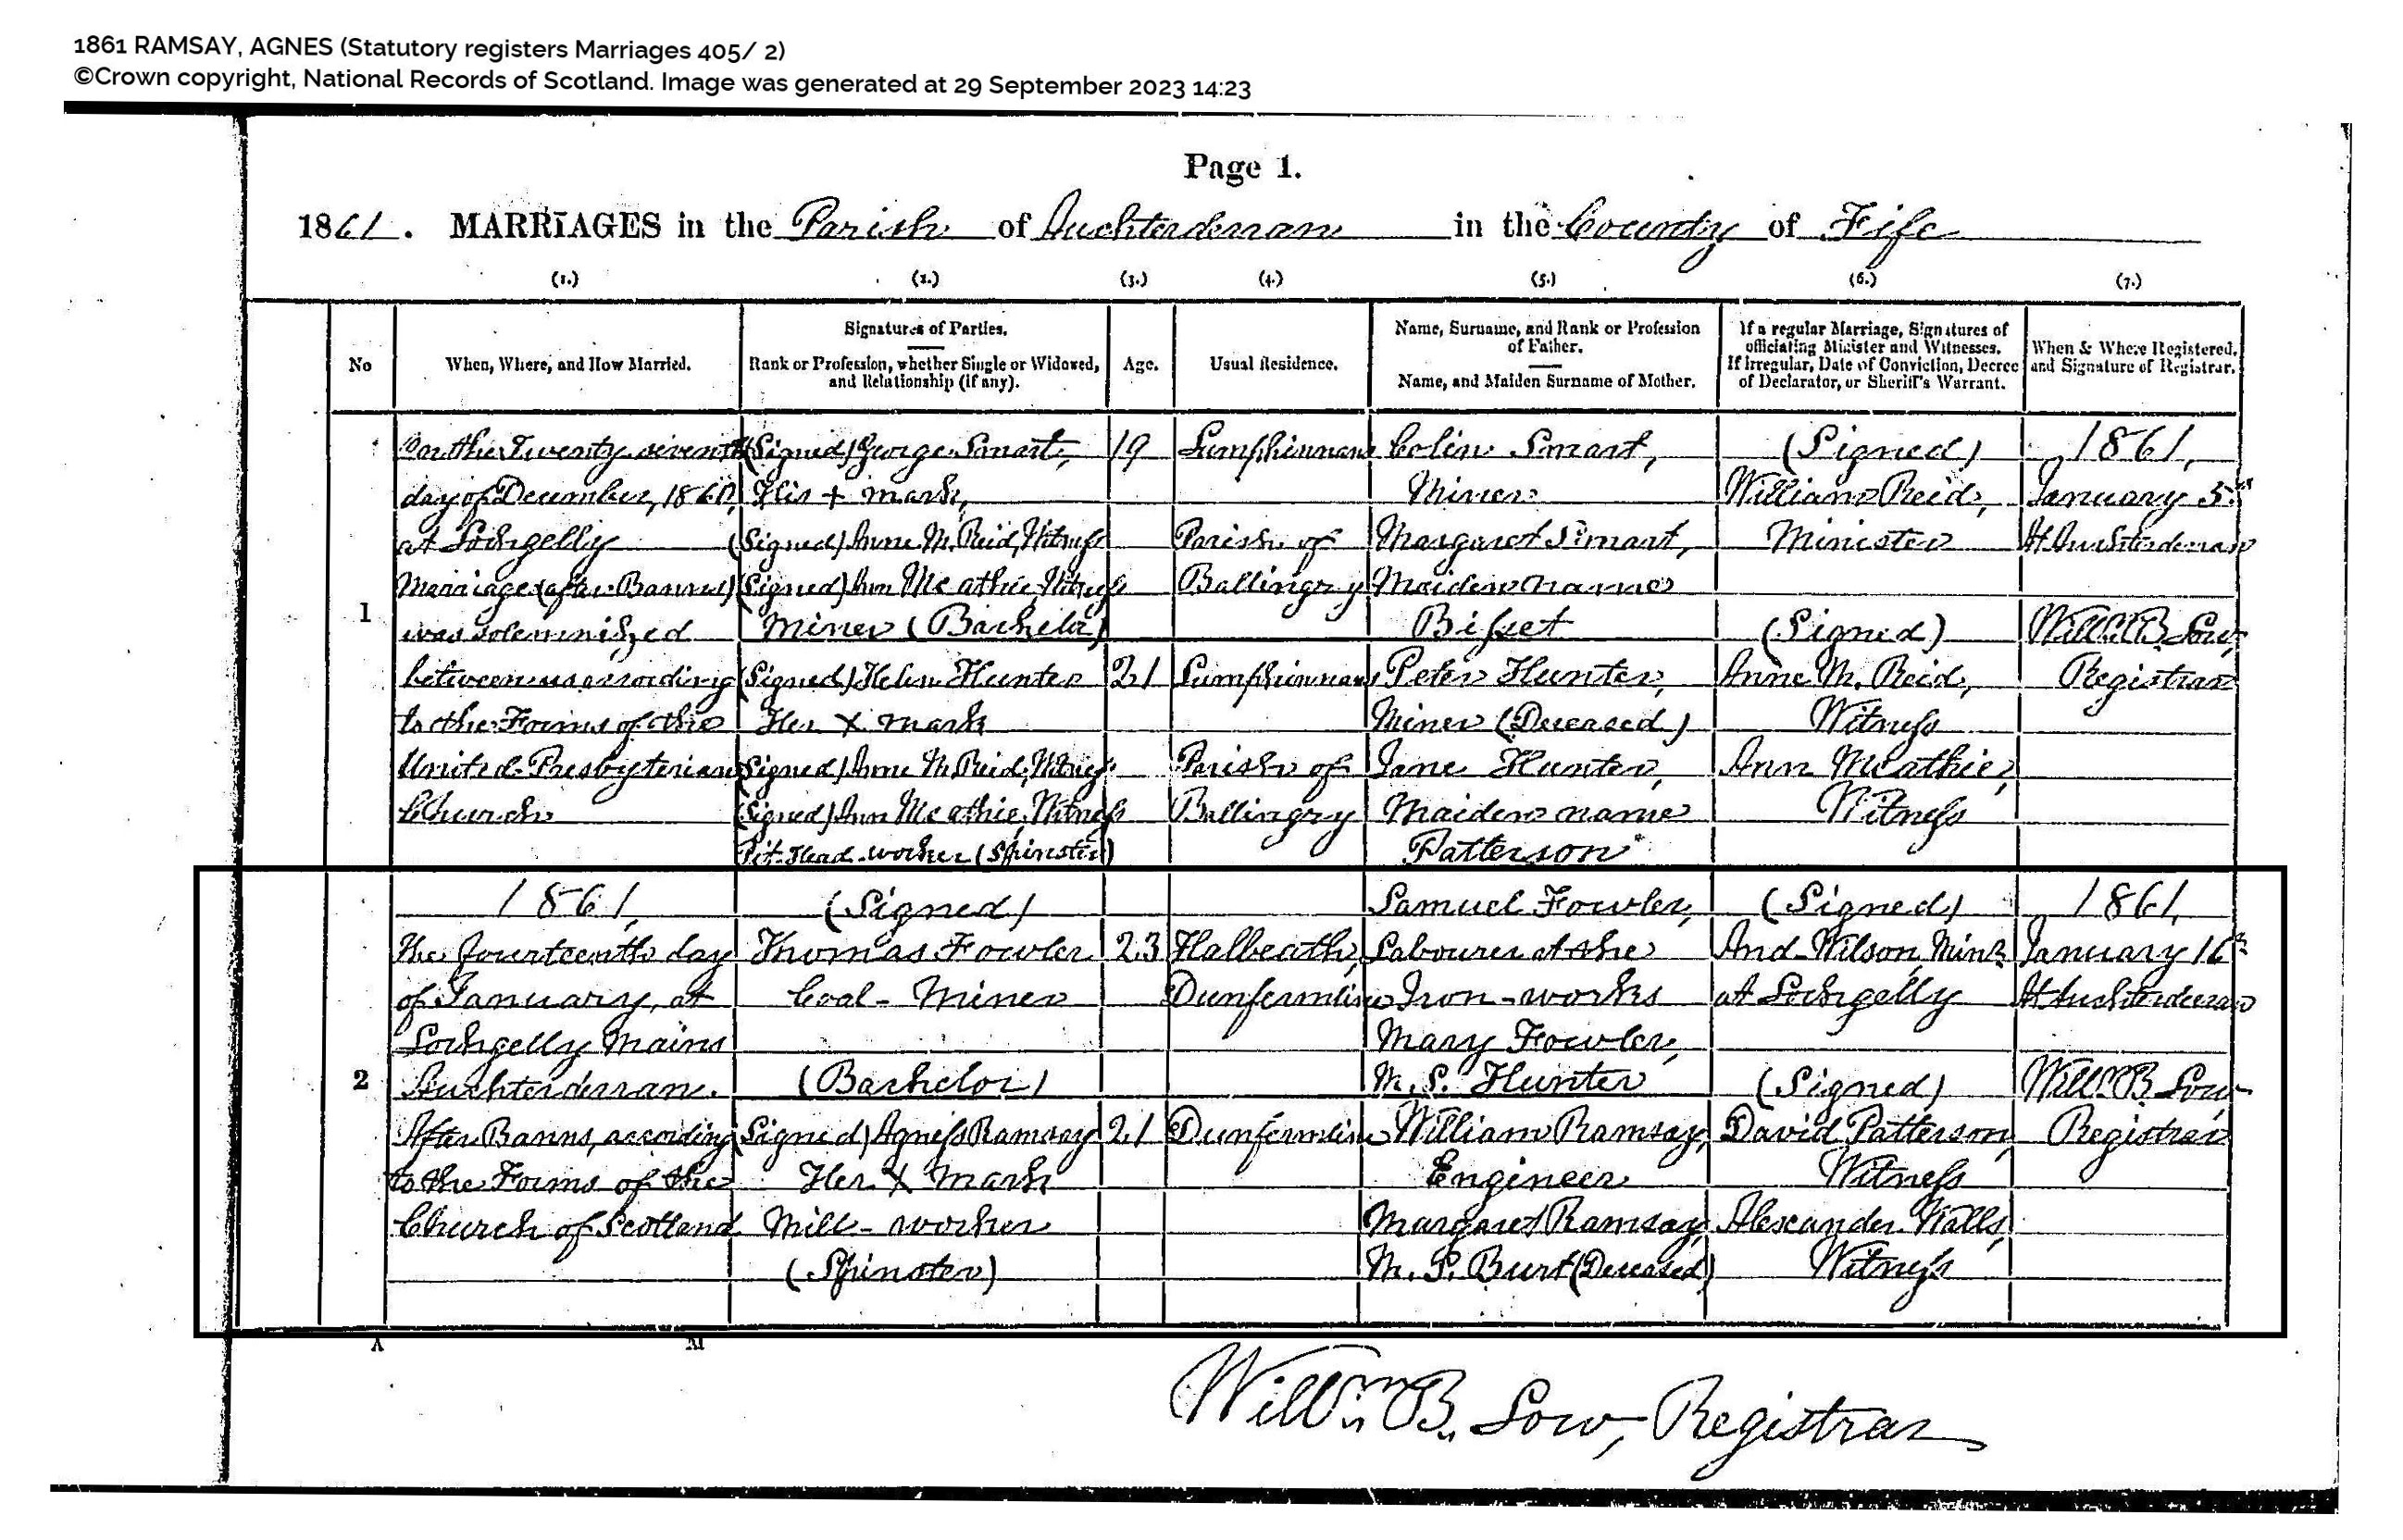 1861 RAMSAY, AGNES (Statutory registers Marriages 405/ 2)
©Crown copyright, National Records of Scotland. Image was generated at 29 September 2023 14:23
Page 1.
1861. MARRIAGES in the Parish of Auchterderran in the County of Fife
(1.) (2.) (3.) (4.) (5.) (6.) (7.)
No
When, Where, and How Married.
Signatures of Parties.
Rank or Profession, whether Single or Widowed,
and Relationship (if any).
Age.
Usual Residence.
Name, Surname, and Rank or Profession
of Father.
Name, and Maiden Surname of Mother.
If a regular Marriage, Signatures of
officiating Minister and Witnesses.
If Irregular, Date of Conviction, Decree
of Declarator, or Sheriff's Warrant.
When & Where Registered,
and Signature of Registrar.
1
on the Twenty seventh
day of December, 1860,
at Lochgelly
Marriage (after Banns)
was solemnized
between us according
to the Forms of the
United Presbyterian
Church
(Signed) George Smart,
His + mark,
(Signed) Anne M. Reid, Witness
(Signed) Ann Mcathie, Witness
Miner (Bachelor)
(Signed) Helen Hunter
Her X mark
(Signed) Anne M. Reid, Witness
(Signed) Ann Mcathie, Witness
Pit-Head-worker (Spinster)
19
21
Lumphinnans
Parish of
Ballingry
Lumphinnans
Parish of
Ballingry
Colin Smart,
Miner
Margaret Smart,
Maiden name
Bisset
Peter Hunter,
Miner (Deceased)
Jane Hunter,
Maiden name
Patterson
(Signed)
William Reid,
Minister
(Signed)
Anne M. Reid,
Witness
Ann Mcathie,
Witness
1861,
January 5th
At Auchterderran
Willm B. Low,
Registrar
2
1861,
the fourteenth day
of January, at
Lochgelly Mains
Auchterderran.
After Banns, according
to the Forms of the
Church of Scotland
(Signed)
Thomas Fowler
Coal-Miner
(Bachelor)
(Signed) Agness Ramsay
Her X mark
Mill-worker
(Spinster)
23
21
Halbeath,
Dunfermline
Dunfermline
Samuel Fowler,
Labourer at the
Iron-works
Mary Fowler,
M. S. Hunter
William Ramsay,
Engineer
Margaret Ramsay,
M. S. Burt (Deceased)
(Signed)
And. Wilson, Minr.
at Lochgelly
(Signed)
David Patterson,
Witness
Alexander Walls,
Witness
1861,
January 16th
At Auchterderran
Willm B. Low
Registrar
A M
Willm B. Low, Registrar